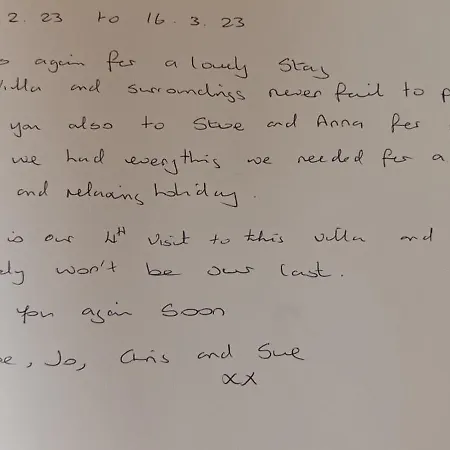 2. 23 to 16. 3. 23
again for a lovely stay
Villa and surroundings never fail to p
you also to Steve and Anna for
we had everything we needed for a
and relaxing holiday.
is our 4th visit to this villa and
ely won't be our last.
you again soon
e, Jo, Chris and Sue
xx